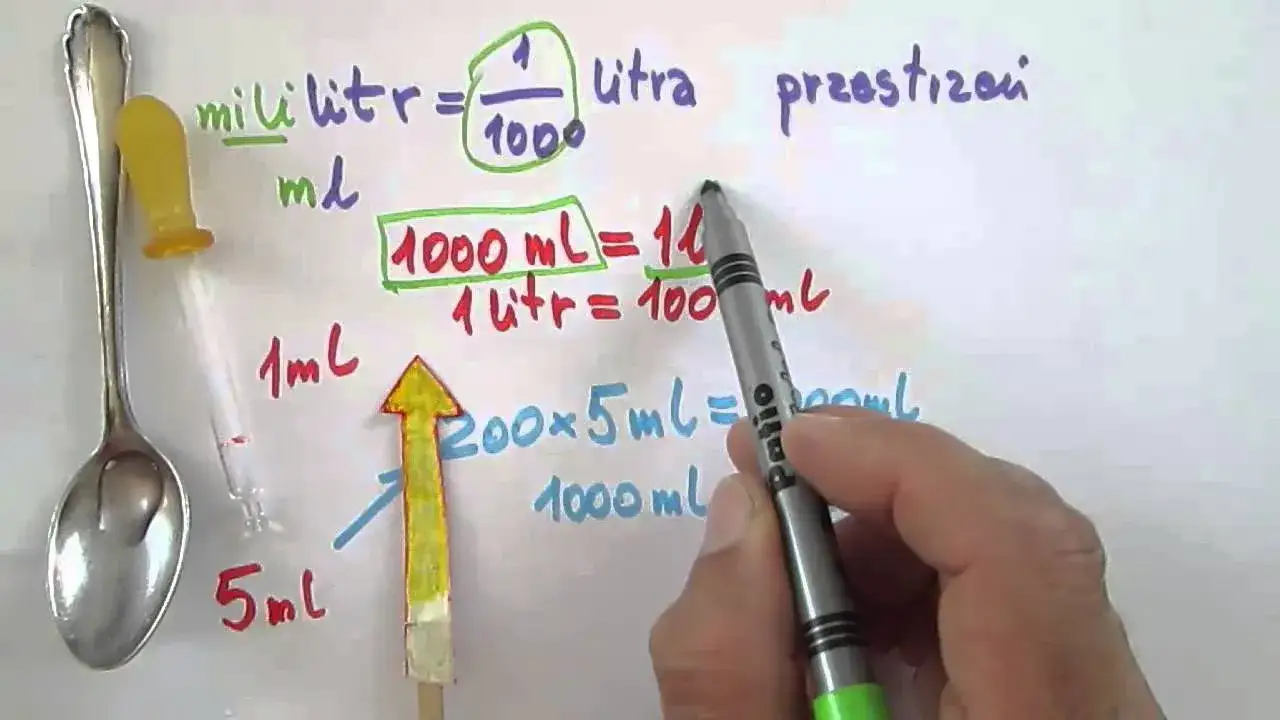 mililitr = 1/1000 litra przestrzeń
ml
1000 ml = 1l
1 litr = 100 ml
1ml
200 × 5 ml = 000ml
1000 ml
5 ml
Patio